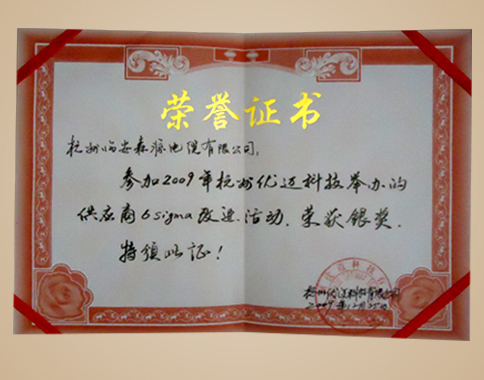 荣誉证书
杭州临安森脉电缆有限公司:
参加2009年杭州优迈科技举办的
供应商6sigma改进活动,荣获银奖,
特颁此证!
杭州优迈科技有限公司